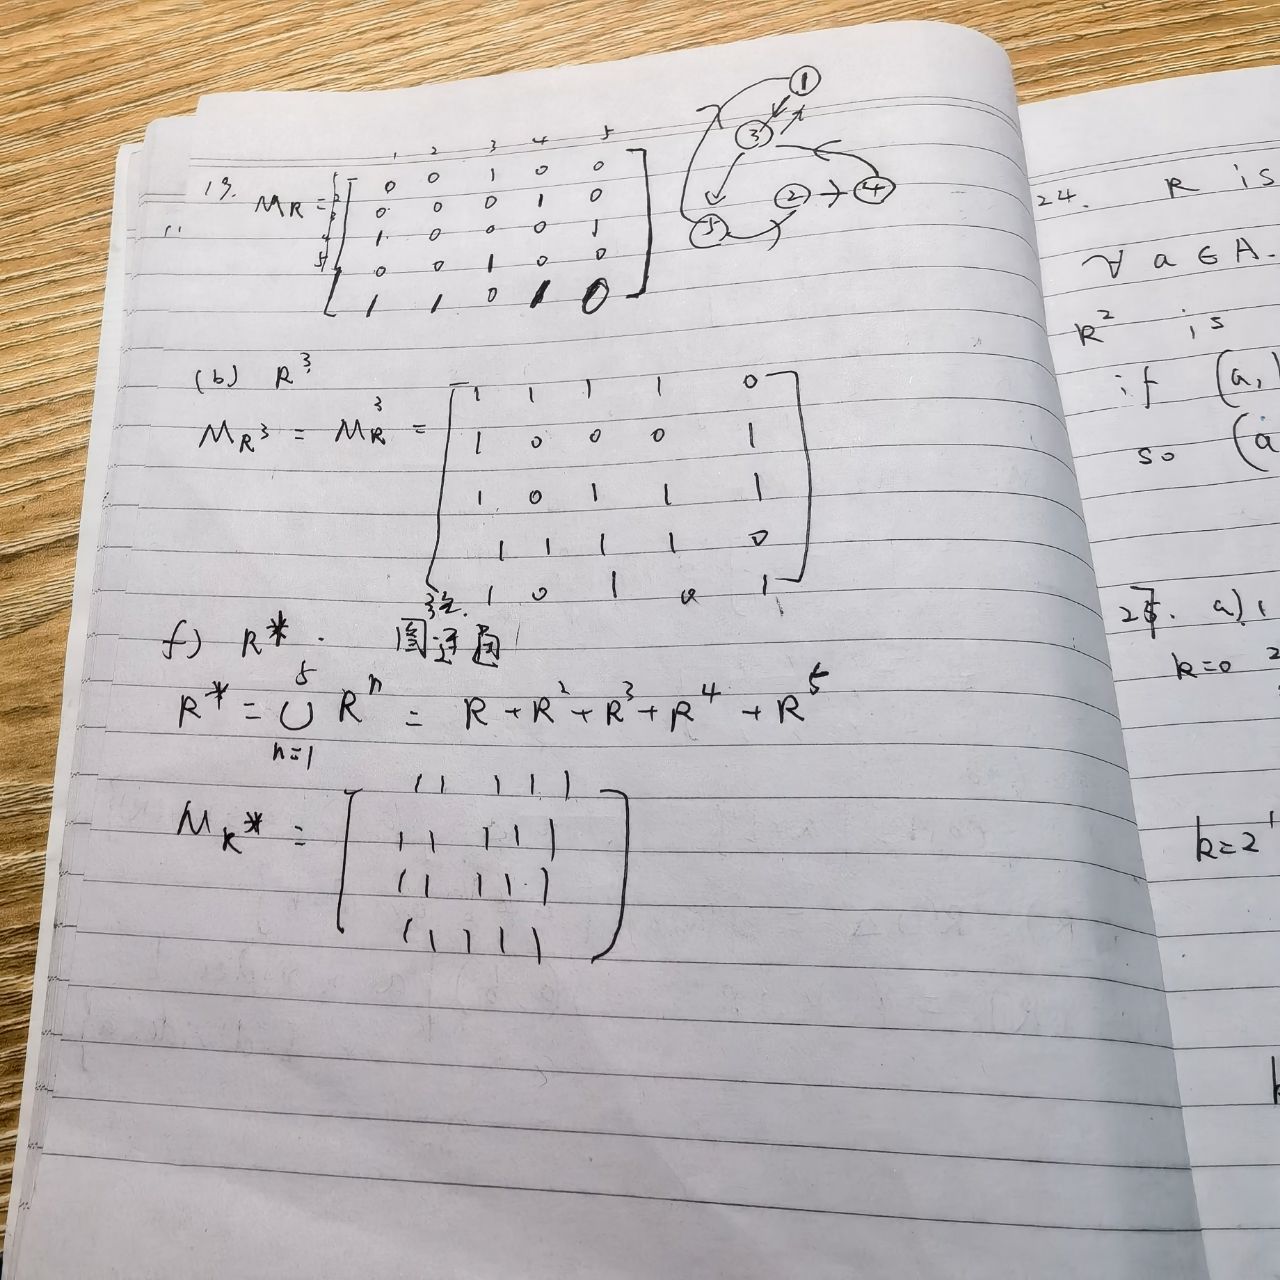 1 2 3 4 5
19. MR = 0 0 1 0 0
0 0 0 1 0
1 0 0 0 1
0 0 1 0 0
1 1 0 1 0
1
3
5 2 4
(b) R³
M_R³ = M_R³ =
1 1 1 1 0
1 0 0 0 1
1 0 1 1 1
1 1 1 1 0
1 0 1 0 1
f) R* .
R* = ∪ Rⁿ = R + R² + R³ + R⁴ + R⁵
5
n=1
M_R* =
1 1 1 1 1
1 1 1 1 1
1 1 1 1 1
1 1 1 1 1
24. R is
∀ a ∈ A.
R² is
if (a,
so (a
a)
k=0
k=2